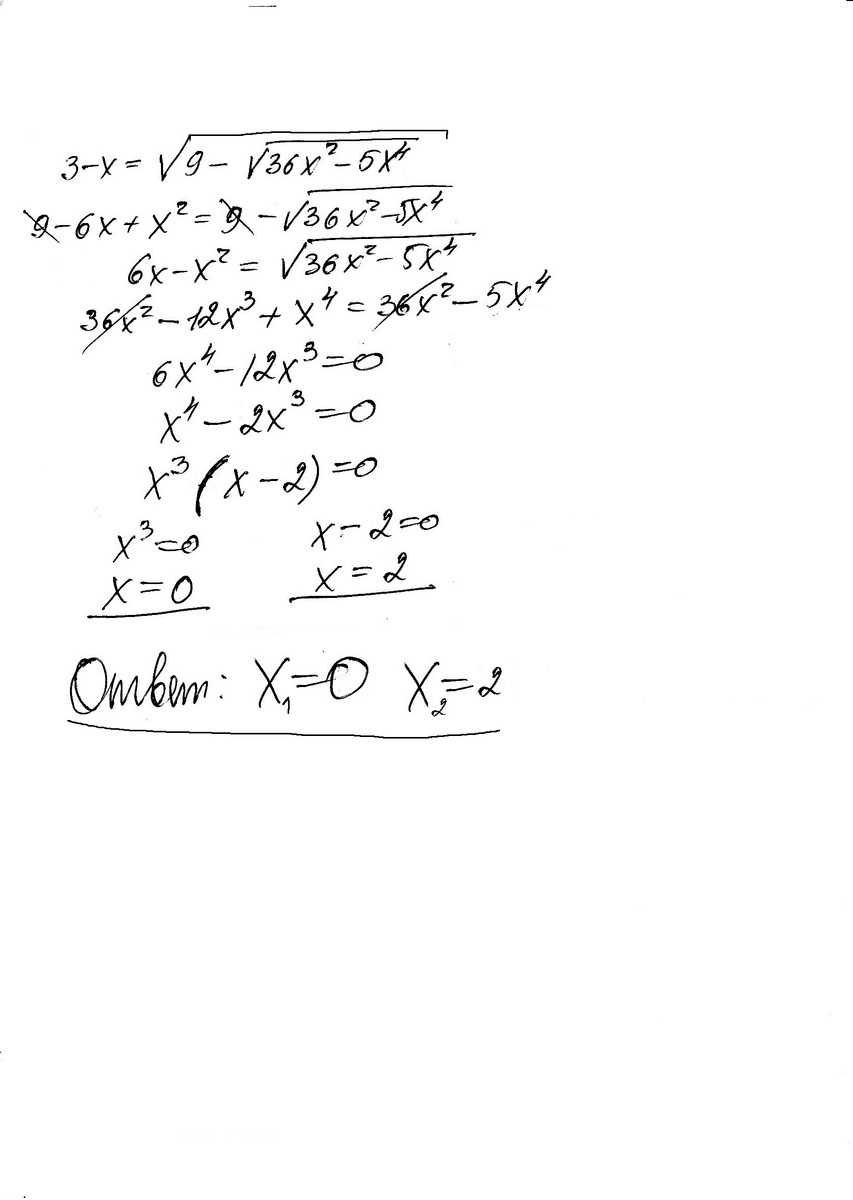 3-x = √(9 - √(36x² - 5x⁴))
9 - 6x + x² = 9 - √(36x² - 5x⁴)
6x - x² = √(36x² - 5x⁴)
36x² - 12x³ + x⁴ = 36x² - 5x⁴
6x⁴ - 12x³ = 0
x⁴ - 2x³ = 0
x³(x - 2) = 0
x³ = 0 x - 2 = 0
x = 0 x = 2
Ответ: x₁ = 0 x₂ = 2